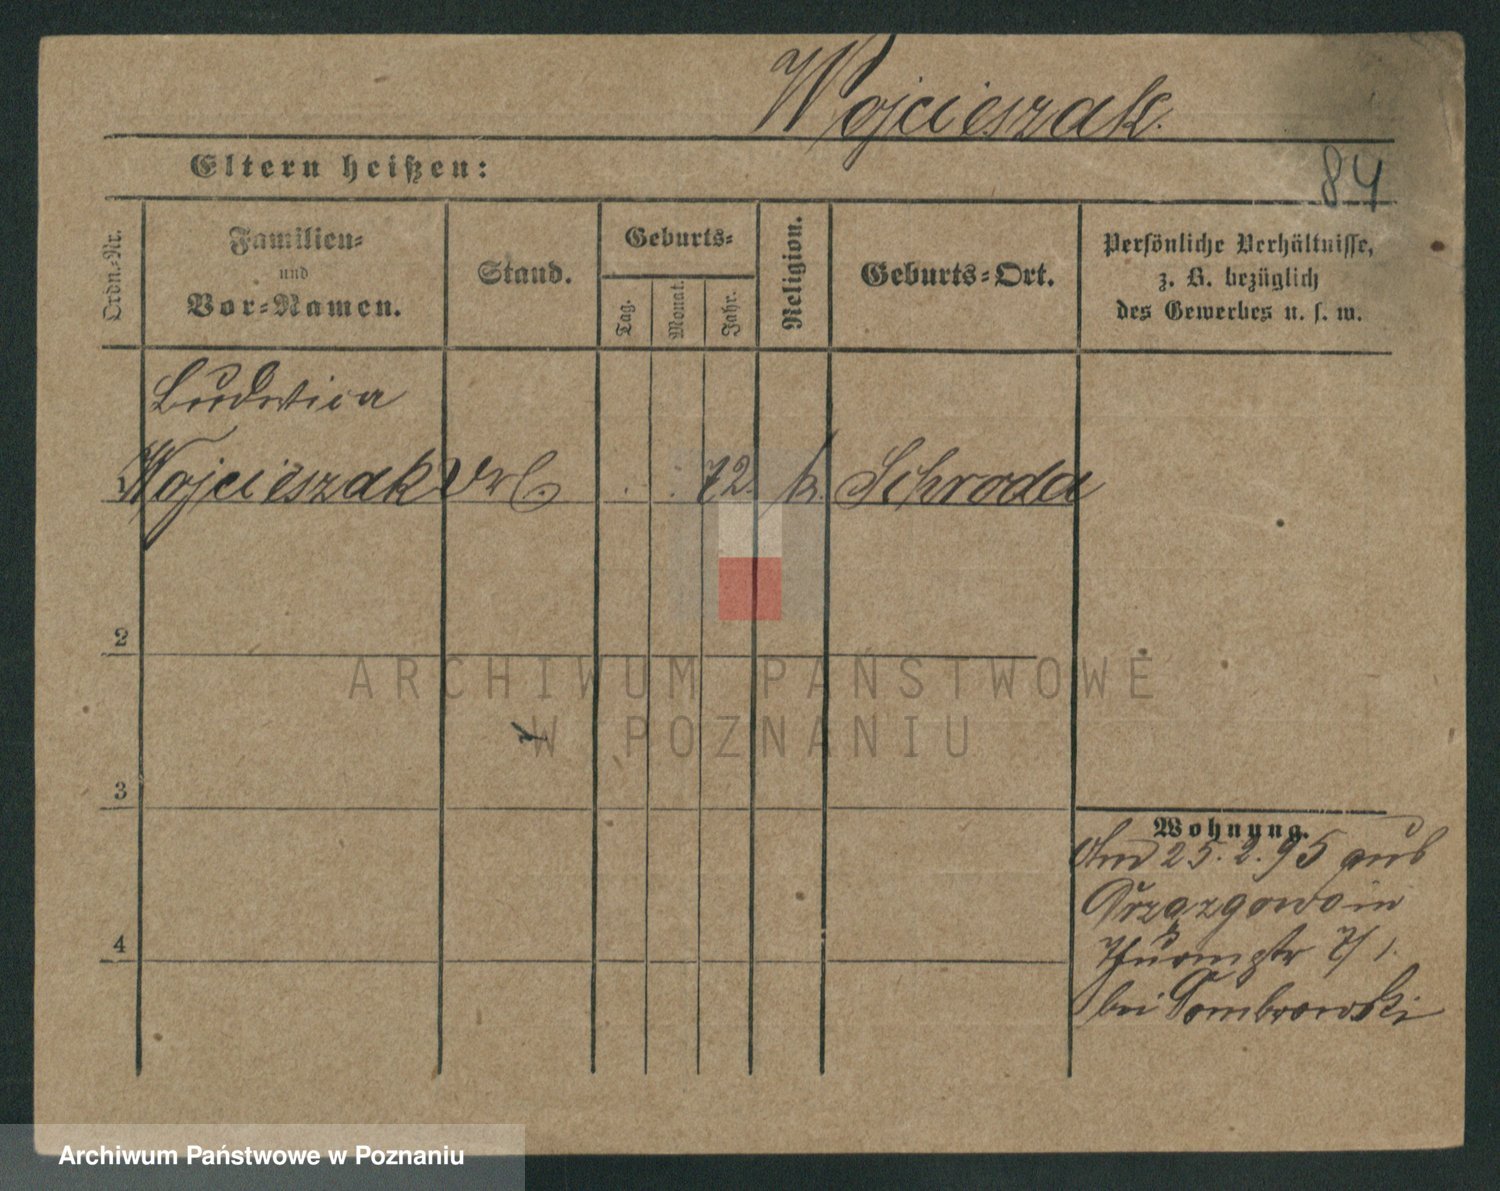 Wojcieszak.
84
Eltern heißen:
Ordn.-Nr.
Familien-
und
Vor-Namen.
Stand.
Geburts-
Tag.
Monat.
Jahr.
Religion.
Geburts-Ort.
Persönliche Verhältnisse,
z. B. bezüglich
des Gewerbes u. s. w.
Ludwica
1 Wojcieszak . . 72. k. Schroda
2
3
4
Wohnung.
25.2.95 aus
in
7/1.
bei Dombrowski
ARCHIWUM PAŃSTWOWE
W POZNANIU
Archiwum Państwowe w Poznaniu